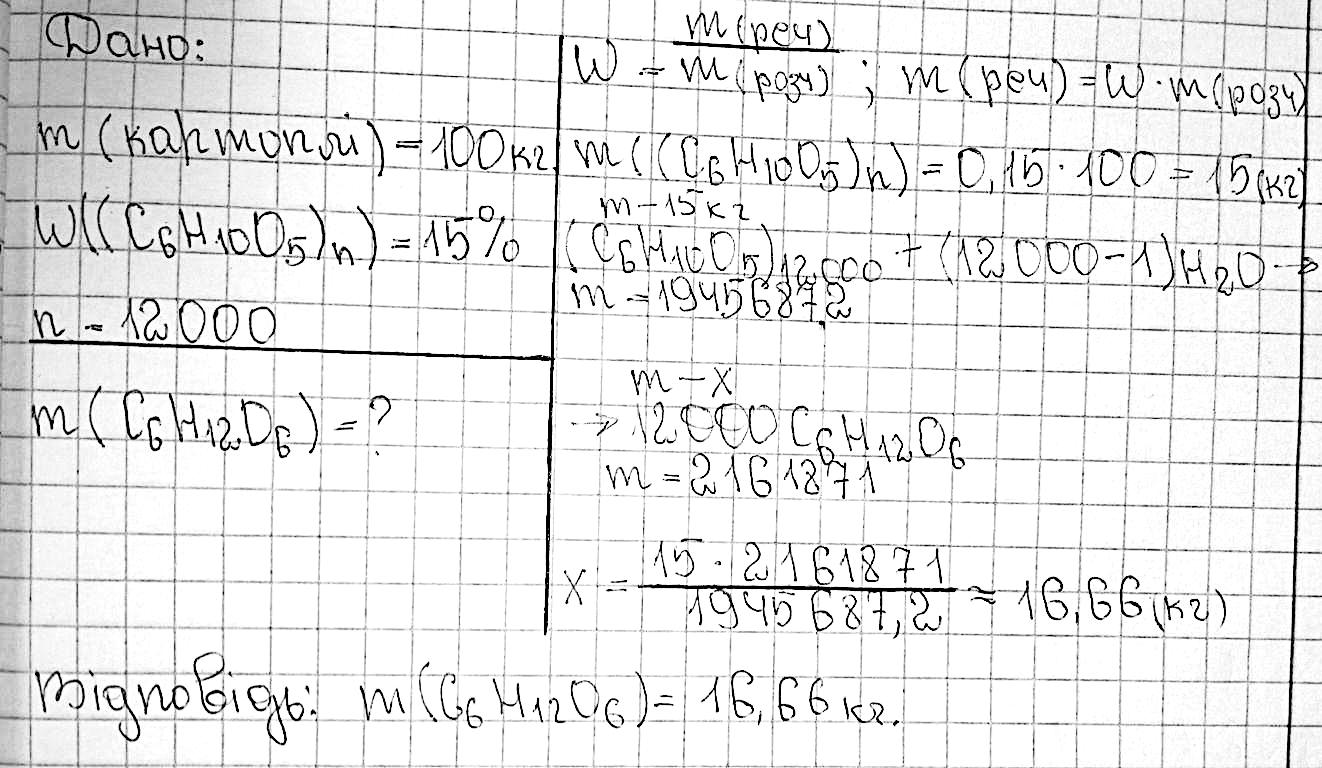 Дано:
m (картоплі) = 100кг
W((C₆H₁₀O₅)n) = 15%
n = 12000
m (C₆H₁₂O₆) = ?
W = m(реч) / m(розч) ; m(реч) = W · m(розч)
m ((C₆H₁₀O₅)n) = 0,15 · 100 = 15 (кг)
m – 15 кг
(C₆H₁₀O₅)₁₂₀₀₀ + (12000-1)H₂O →
m = 1945687,2
m – x
→ 12000 C₆H₁₂O₆
m = 2161871
x = 15 · 2161871 / 1945687,2 ≈ 16,66 (кг)
Відповідь: m(C₆H₁₂O₆) = 16,66 кг.